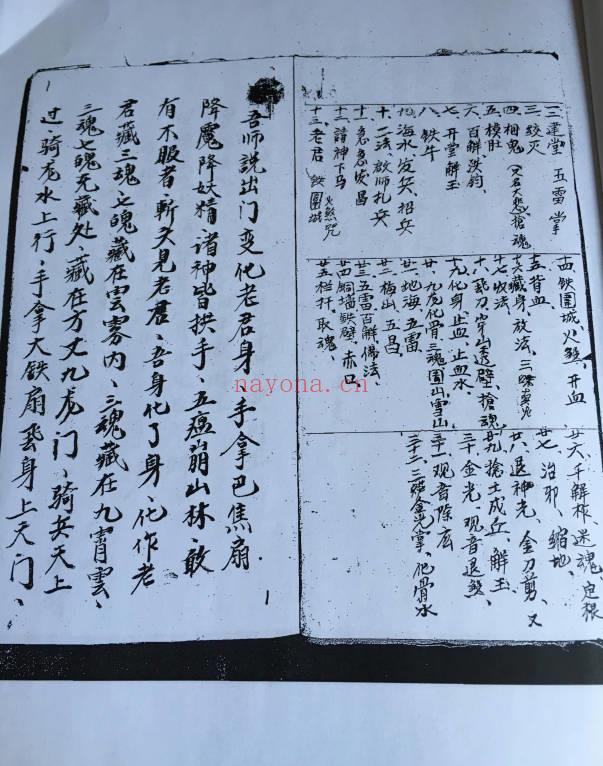 一二建堂 五雷掌
三 绞灭
四 相鬼
五 模肚
六 百解铁钧、
七、开堂解玉
八、铁牛
九、海水发兵、招兵
十、二法、敕师扎兵
十一、急急坎昌
十二、請神下马
十三、老君 鉄圍城 火煞咒
十四 铁圍城、火煞、开血、
十五 背血
十六 藏身、放法、三
十七 收法
十八 裁刀、穿山透壁、搶魂
十九、化身、止血、止血水、
廿、九龙化骨三魂圍山雪山
廿一、地海、五雷
廿二、梅山、五昌
廿三、五雷百解佛法、
廿四 銅墙鉄壁、赤巴
廿五 栏扦、取魂、
廿六 千解柞、迷魂、定根
廿七、治邪、缩地、
廿八、退神光、金刀剪、又
廿九、捻土成丘、解玉、
三十、金光、观音退煞
三十一、观音除広
三十二、金光掌、化骨水
吾师説出门变化老君身、手拿巴焦扇
降魔降妖精、诸神皆拱手、五瘟崩山林、敢
有不服者、斬头見老君、吾身化了身、化作老
君藏三魂、七魄藏在雲雾内、三魂藏在九霄雲、
三魂七魄无藏处、藏在方丈九龙门、騎兵天上
过、骑龙水上行、手拿大铁扇飛身上天门、
1
1
nayona.cn